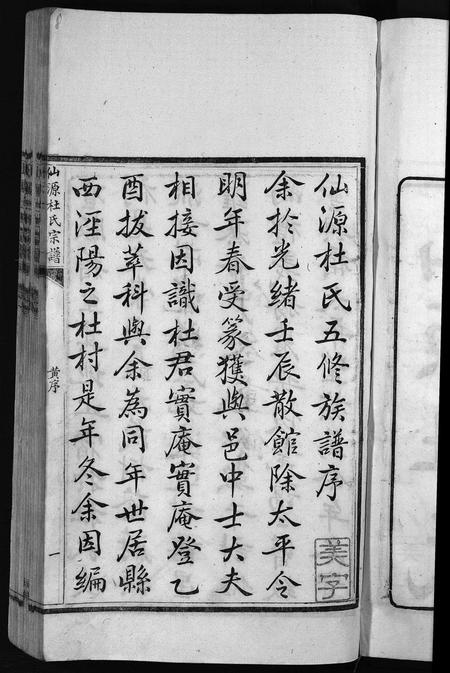 仙源杜氏五修族譜序
余於光緒壬辰散館除太平令
明年春受篆獲與邑中士大夫
相接因識杜君實庵實庵登乙
酉拔萃科與余為同年世居縣
西涇陽之杜村是年冬余因編
美字
仙源杜氏宗譜
黄序
一
8